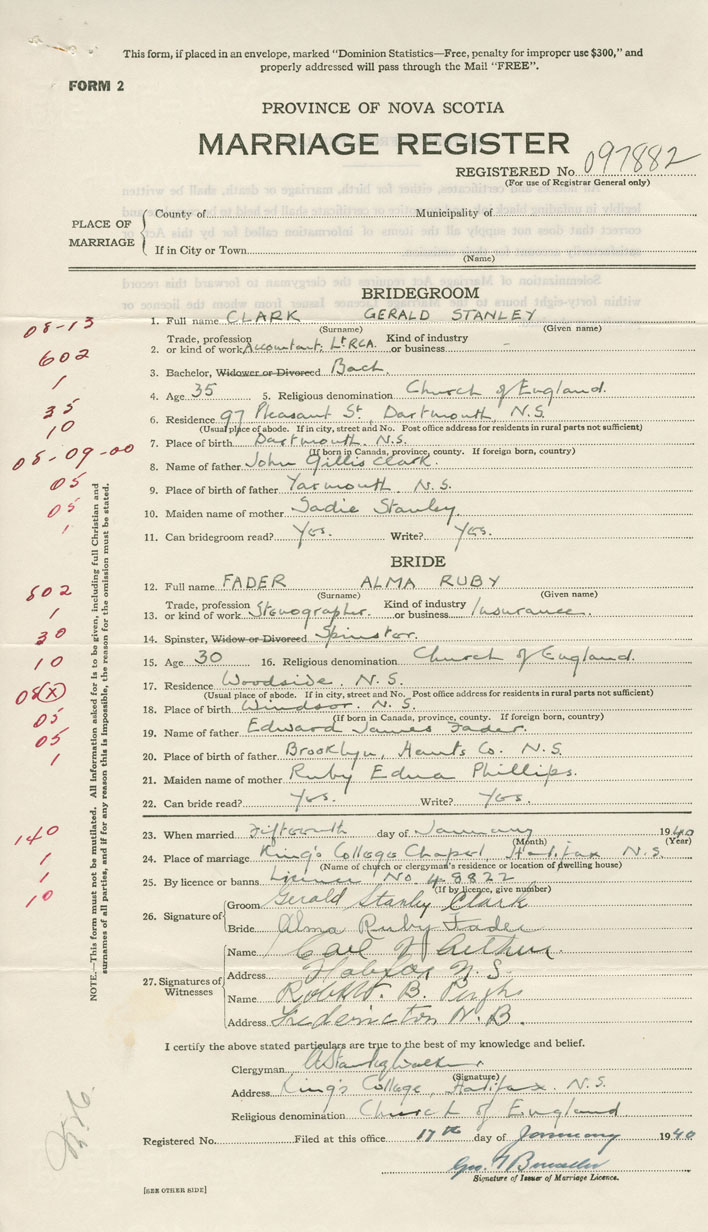 This form, if placed in an envelope, marked "Dominion Statistics—Free, penalty for improper use $300," and
properly addressed will pass through the Mail "FREE".
FORM 2
PROVINCE OF NOVA SCOTIA
MARRIAGE REGISTER
REGISTERED No. 097882
(For use of Registrar General only)
PLACE OF MARRIAGE
County of Municipality of
If in City or Town
(Name)
BRIDEGROOM
08-13
1. Full name CLARK GERALD STANLEY
(Surname) (Given name)
602
2. Trade, profession or kind of work Accountant, Lt RCA. Kind of industry or business -
1
3. Bachelor, Widower or Divorced Bach.
35
4. Age 35 5. Religious denomination Church of England.
10
6. Residence 97 Pleasant St., Dartmouth, N.S.
(Usual place of abode. If in city, street and No. Post office address for residents in rural parts not sufficient)
08-09-00
7. Place of birth Dartmouth. N.S.
(If born in Canada, province, county. If foreign born, country)
8. Name of father John Gillis Clark.
05
9. Place of birth of father Yarmouth. N.S.
05
10. Maiden name of mother Sadie Stanley
1
11. Can bridegroom read? Yes. Write? Yes.
BRIDE
12. Full name FADER ALMA RUBY
(Surname) (Given name)
802
13. Trade, profession or kind of work Stenographer. Kind of industry or business Insurance.
1
14. Spinster, Widow or Divorced Spinster.
30
15. Age 30 16. Religious denomination Church of England.
10
17. Residence Woodside. N.S.
(Usual place of abode. If in city, street and No. Post office address for residents in rural parts not sufficient)
08 X
18. Place of birth Windsor. N.S.
(If born in Canada, province, county. If foreign born, country)
05
19. Name of father Edward James Fader.
05
20. Place of birth of father Brooklyn, Hants Co. N.S.
1
21. Maiden name of mother Ruby Edna Phillips.
22. Can bride read? Yes. Write? Yes.
140
23. When married Fifteenth day of January 1940
(Month) (Year)
1
24. Place of marriage King's College Chapel, Halifax N.S.
(Name of church or clergyman's residence or location of dwelling house)
1
25. By licence or banns Licence No. 48822
(If by licence, give number)
10
26. Signature of
Groom Gerald Stanley Clark
Bride Alma Ruby Fader
27. Signatures of Witnesses
Name Carl
Address Halifax N.S.
Name Robert W. B.
Address Fredericton N.B.
NOTE.—This form must not be mutilated. All information asked for is to be given, including full Christian and
surnames of all parties, and if for any reason this is impossible, the reason for the omission must be stated.
I certify the above stated particulars are true to the best of my knowledge and belief.
Clergyman A Stanley Walker
(Signature)
Address King's College, Halifax. N.S.
Religious denomination Church of England
Registered No. Filed at this office 17th day of January 1940
Geo.
Signature of Issuer of Marriage Licence.
[SEE OTHER SIDE]